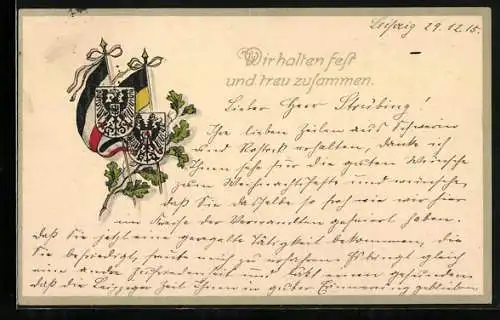 Leipzig 29.12.15.
Wir halten fest
und treu zusammen.
Lieber Herr Strubing!
Ihre lieben Zeilen aus Schwerin
und Rostock erhalten, danke ich
Ihnen sehr für die guten Wünsche
zum Weihnachtsfeste und wünsche,
daß Sie dasselbe so froh wie wir hier
im Kreise der Verwandten gefeiert haben.
daß Sie jetzt eine geregelte Tätigkeit bekommen, die
Sie befriedigt, freute mich zu erfahren. bringt gleich
eine andre Zufriedenheit und
daß die Leipziger Zeit Ihnen in guter Erinnerung geblieben